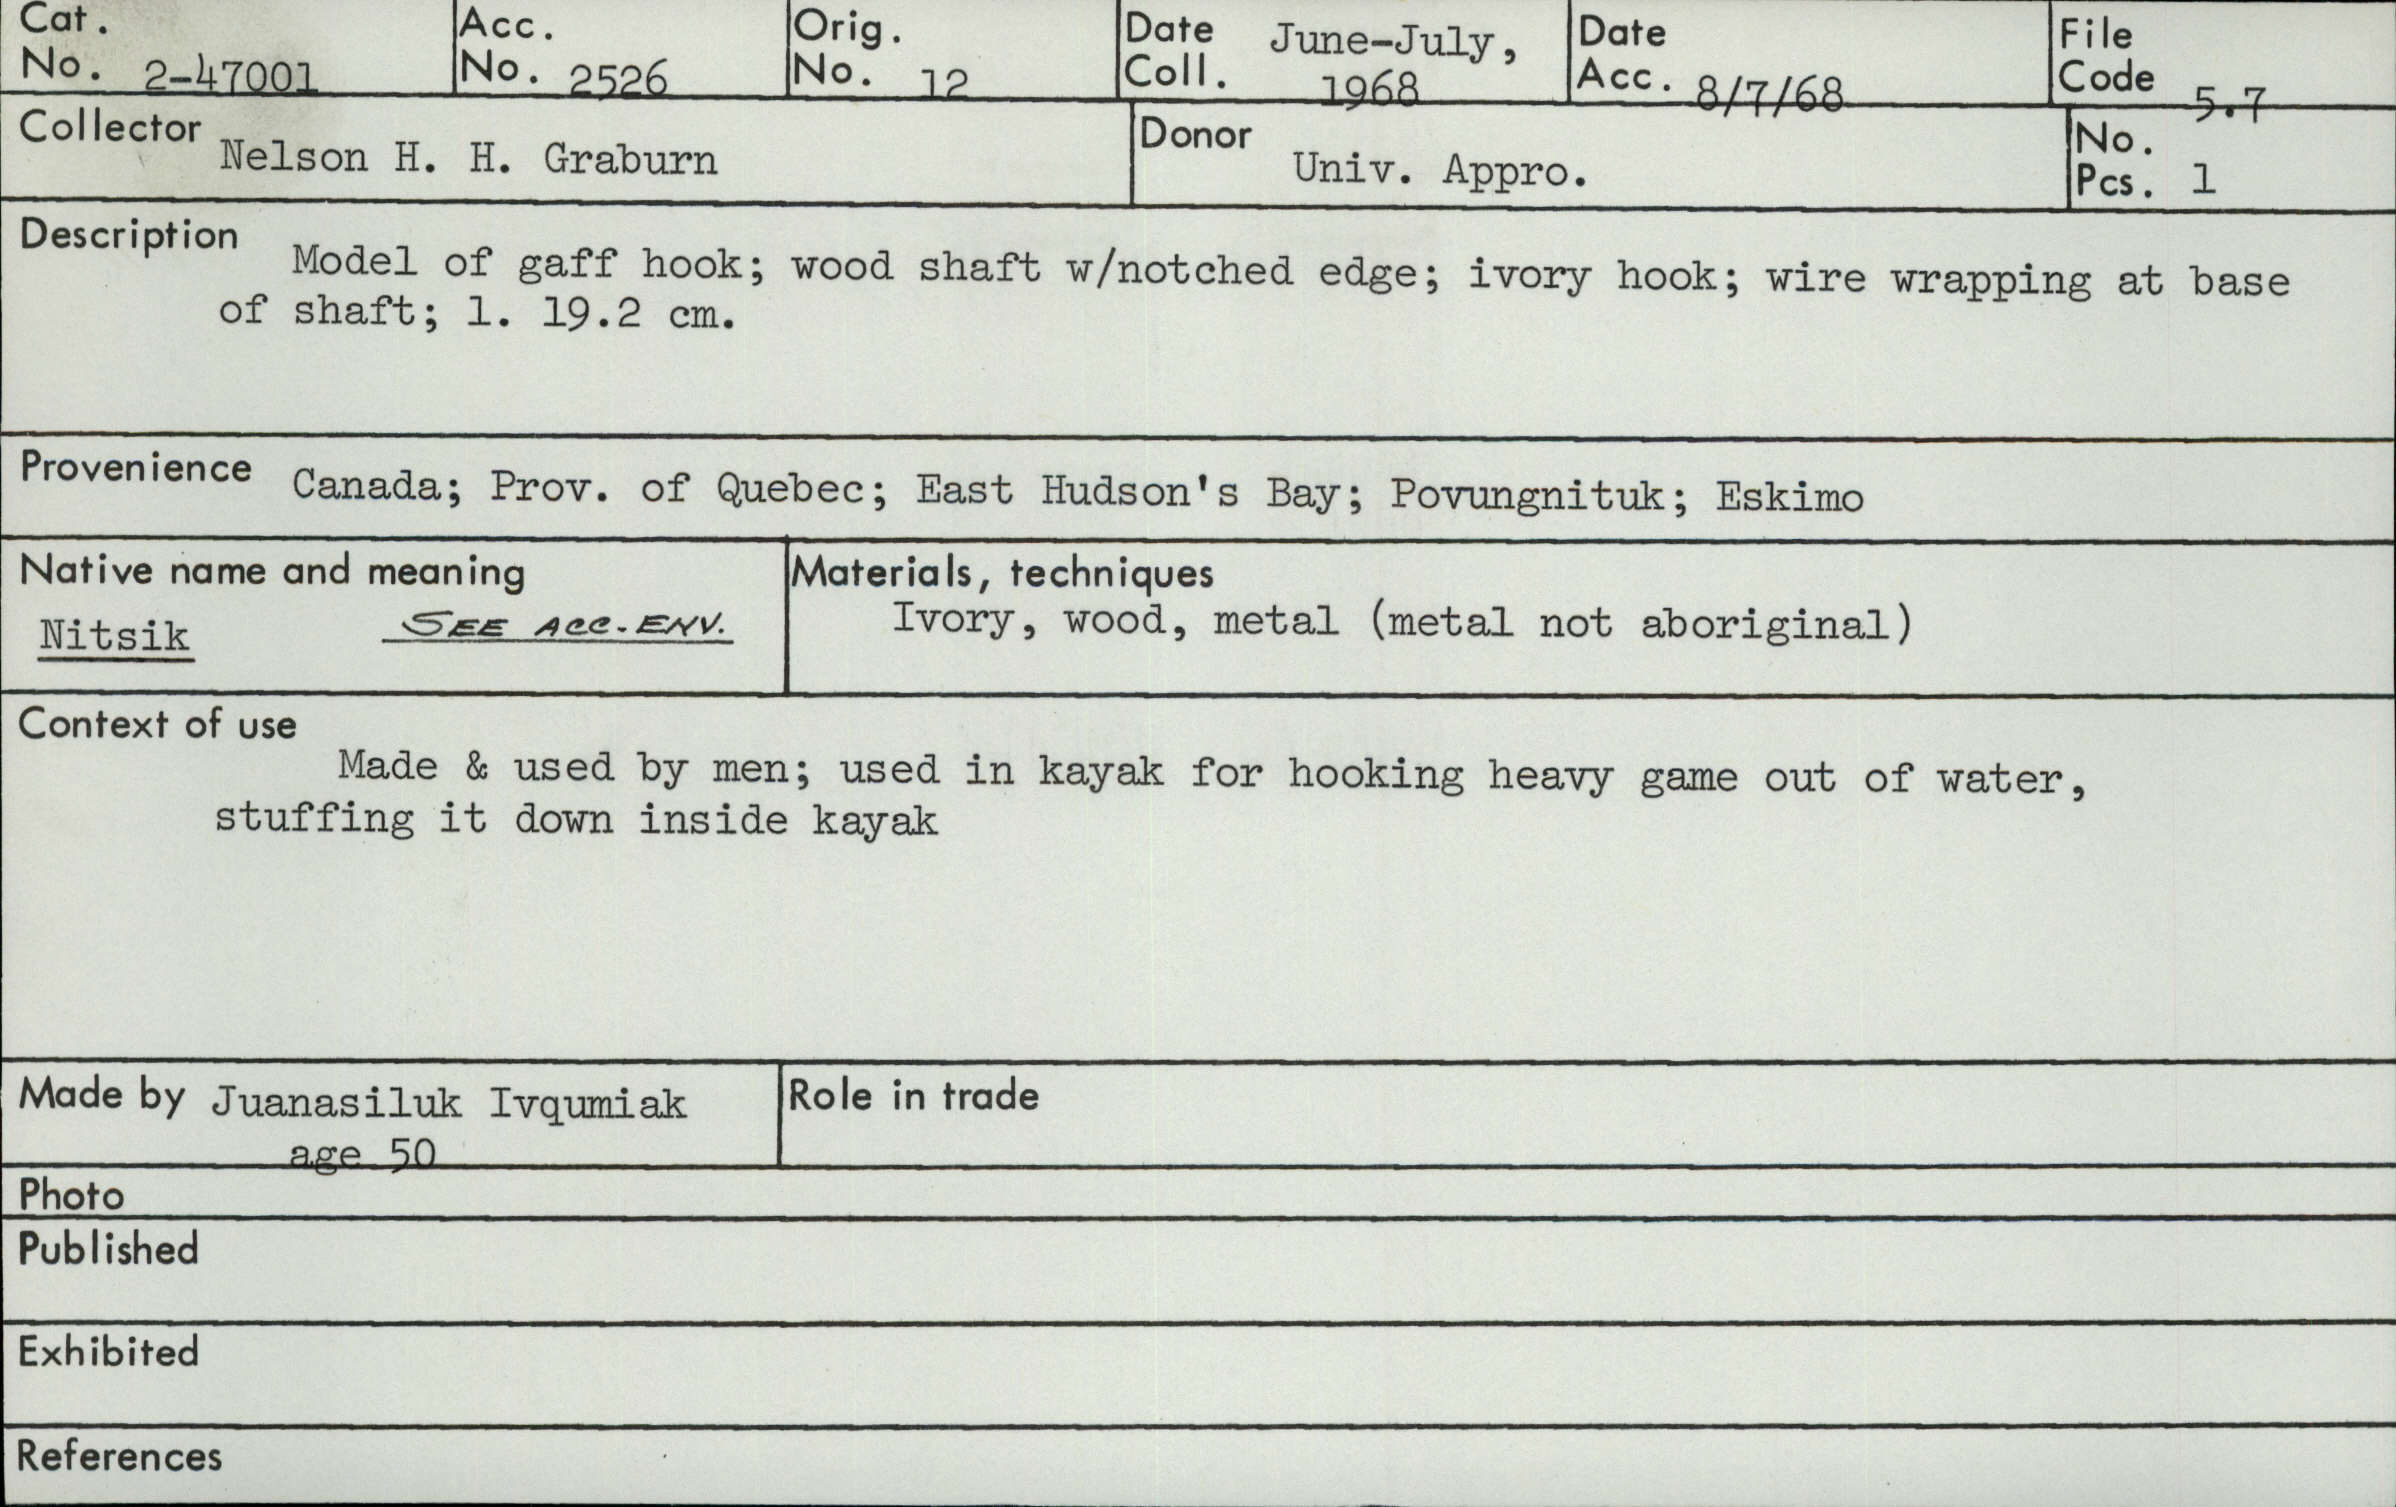 Cat. No. 2-47001
Acc. No. 2526
Orig. No. 12
Date Coll. June-July, 1968
Date Acc. 8/7/68
File Code 5.7
Collector Nelson H. H. Graburn
Donor Univ. Appro.
No. Pcs. 1
Description Model of gaff hook; wood shaft w/notched edge; ivory hook; wire wrapping at base
of shaft; l. 19.2 cm.
Provenience Canada; Prov. of Quebec; East Hudson's Bay; Povungnituk; Eskimo
Native name and meaning
Nitsik SEE ACC. ENV.
Materials, techniques
Ivory, wood, metal (metal not aboriginal)
Context of use
Made & used by men; used in kayak for hooking heavy game out of water,
stuffing it down inside kayak
Made by Juanasiluk Ivqumiak
age 50
Role in trade
Photo
Published
Exhibited
References